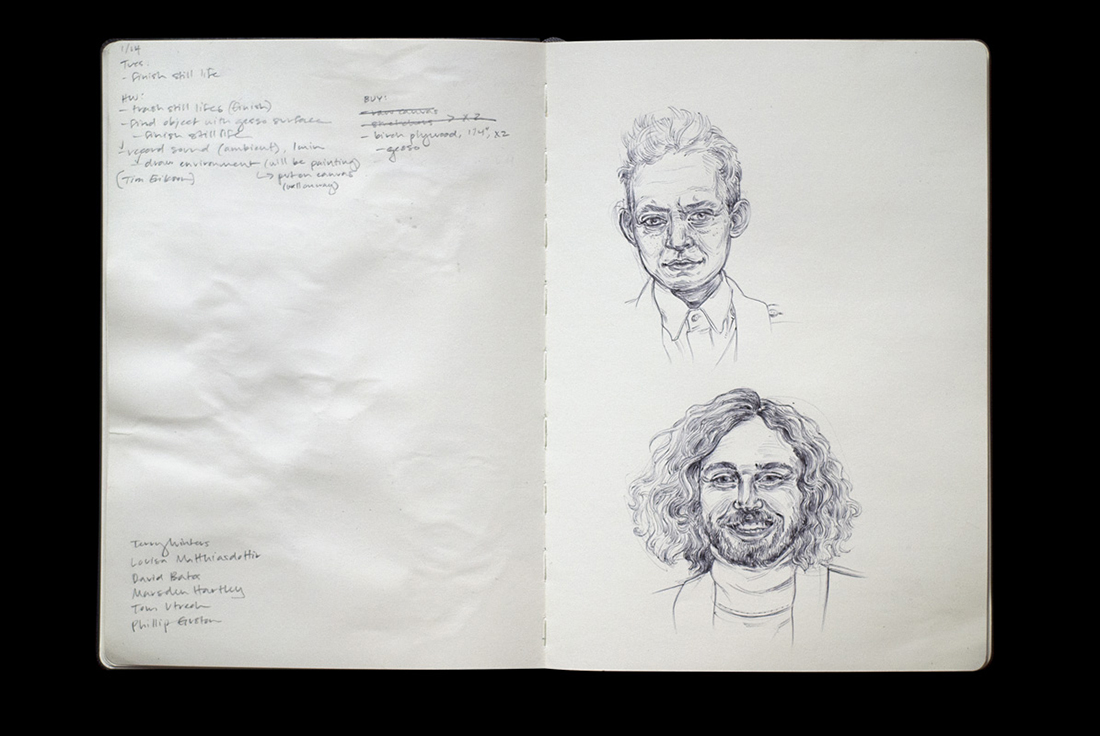 1/24
Tues.
- finish still life
HW:
- trash still lifes (finish)
- find object with gesso surface
- finish still life
- record sound (ambient), 1min
draw environment (will be painting)
(Tim Erikson)
↳ put on canvas
BUY:
x 2
- birch plywood, 1/4", x2
- gesso
Terry Winters
Louisa Matthiasdottir
David Bates
Marsden Hartley
Tom
Phillip Guston